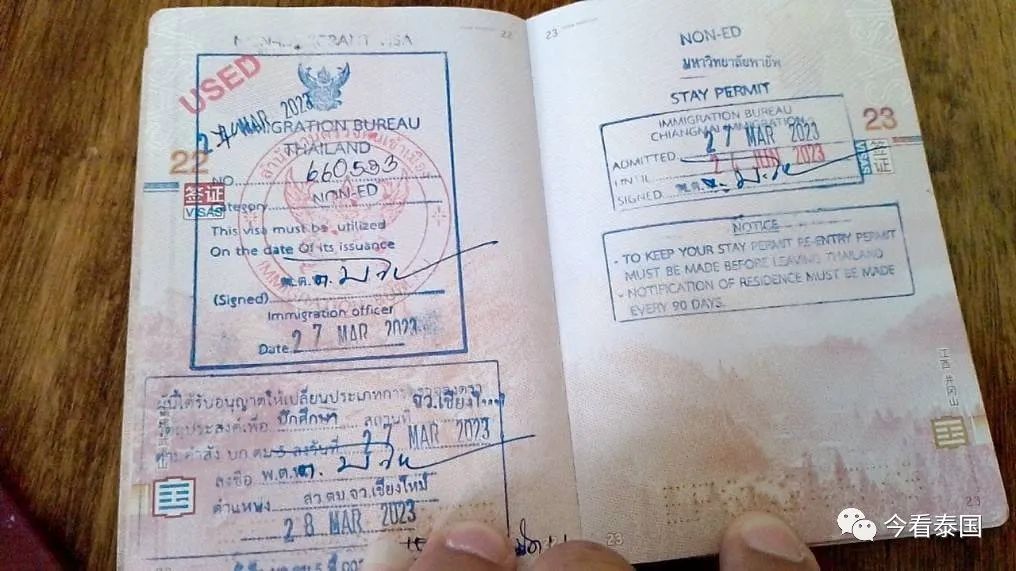 22
USED
27 MAR 2023
IMMIGRATION BUREAU
THAILAND
22
签证
VISAS
NO. 660593
Category NON-ED
This visa must be utilized
On the date of its issuance
(Signed)
Immigration officer
Date 27 MAR 2023
ผู้นี้ได้รับอนุญาตให้เปลี่ยนประเภทการตรวจลงตรา
วัตถุประสงค์เพื่อ ศึกษา สถานที่ จว.เชียงใหม่
MAR 2023
ลงชื่อ พ.ต.ท.
ตำแหน่ง สว.ตม.จว.เชียงใหม่
28 MAR 2023
23
NON-ED
มหาวิทยาลัยพายัพ
STAY PERMIT
IMMIGRATION BUREAU
CHIANGMAI IMMIGRATION
ADMITTED 27 MAR 2023
UNTIL JUN 2023
SIGNED
23
签证
NOTICE
- TO KEEP YOUR STAY PERMIT RE-ENTRY PERMIT
MUST BE MADE BEFORE LEAVING THAILAND
- NOTIFICATION OF RESIDENCE MUST BE MADE
EVERY 90 DAYS.
江西 井冈山
23
23
今看泰国